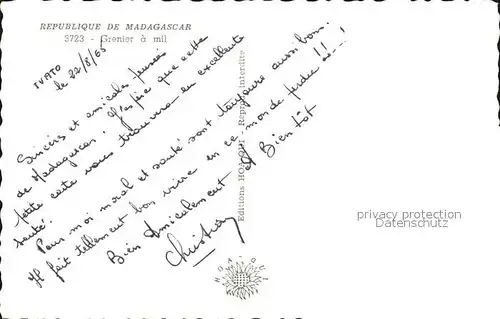 REPUBLIQUE DE MADAGASCAR
3723 - Grenier à mil
IVATO
le 22/8/65
Sincères et amicales pensées
de Madagascar. J'espère que cette
petite carte vous trouvera en excellente
santé.
Pour moi moral et santé sont toujours aussi bon.
Il fait tellement bon vivre en ce monde perdu !!
Bien Amicalement et Bientôt
Christian
Editions HOA-QUI - Reproduction Interdite
HOA QUI
privacy protection
Datenschutz